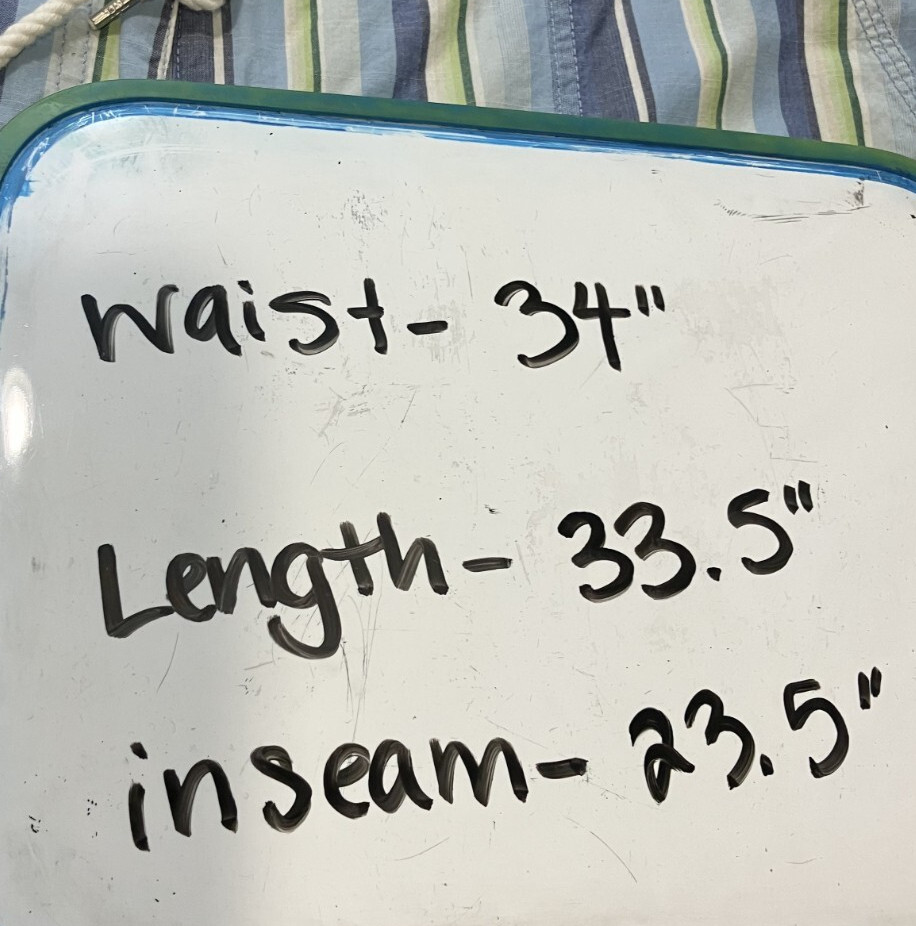 Waist- 34"
Length- 33.5"
inseam- 23.5"